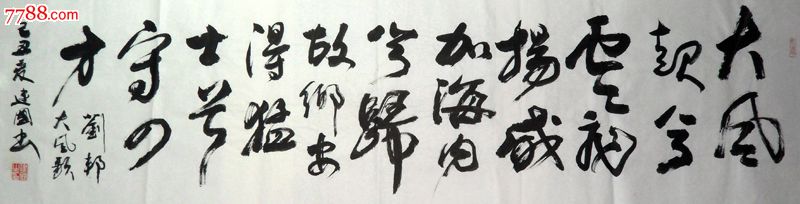 7788.com
中国收藏热线
大風
起兮
雲飛
揚威
加海内
兮歸
故鄉安
得猛
士兮
守四
方
劉邦
大風歌
己丑夏建國書